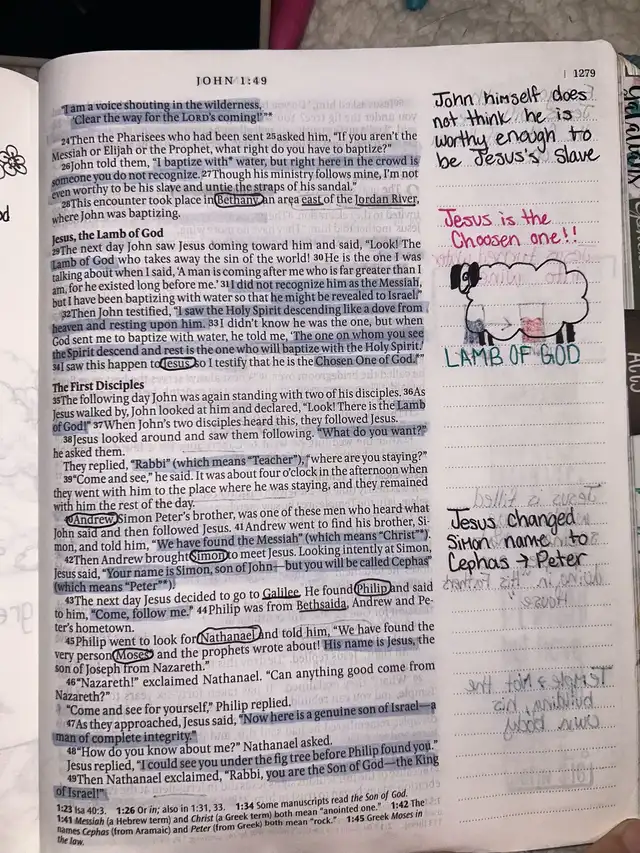 JOHN 1:49
1279
"I am a voice shouting in the wilderness,
'Clear the way for the LORD's coming!'"*
24Then the Pharisees who had been sent 25asked him, "If you aren't the
Messiah or Elijah or the Prophet, what right do you have to baptize?"
26John told them, "I baptize with* water, but right here in the crowd is
someone you do not recognize. 27Though his ministry follows mine, I'm not
even worthy to be his slave and untie the straps of his sandal."
28This encounter took place in Bethany, an area east of the Jordan River,
where John was baptizing.
Jesus, the Lamb of God
29The next day John saw Jesus coming toward him and said, "Look! The
Lamb of God who takes away the sin of the world! 30He is the one I was
talking about when I said, 'A man is coming after me who is far greater than I
am, for he existed long before me.' 31I did not recognize him as the Messiah,
but I have been baptizing with water so that he might be revealed to Israel."
32Then John testified, "I saw the Holy Spirit descending like a dove from
heaven and resting upon him. 33I didn't know he was the one, but when
God sent me to baptize with water, he told me, 'The one on whom you see
the Spirit descend and rest is the one who will baptize with the Holy Spirit.'
34I saw this happen to Jesus, so I testify that he is the Chosen One of God.*"
The First Disciples
35The following day John was again standing with two of his disciples. 36As
Jesus walked by, John looked at him and declared, "Look! There is the Lamb
of God!" 37When John's two disciples heard this, they followed Jesus.
38Jesus looked around and saw them following. "What do you want?"
he asked them.
They replied, "Rabbi" (which means "Teacher"), "where are you staying?"
39"Come and see," he said. It was about four o'clock in the afternoon when
they went with him to the place where he was staying, and they remained
with him the rest of the day.
40Andrew, Simon Peter's brother, was one of these men who heard what
John said and then followed Jesus. 41Andrew went to find his brother, Si-
mon, and told him, "We have found the Messiah" (which means "Christ"*).
42Then Andrew brought Simon to meet Jesus. Looking intently at Simon,
Jesus said, "Your name is Simon, son of John—but you will be called Cephas"
(which means "Peter"*).
43The next day Jesus decided to go to Galilee. He found Philip and said
to him, "Come, follow me." 44Philip was from Bethsaida, Andrew and Pe-
ter's hometown.
45Philip went to look for Nathanael and told him, "We have found the
very person Moses* and the prophets wrote about! His name is Jesus, the
son of Joseph from Nazareth."
46"Nazareth!" exclaimed Nathanael. "Can anything good come from
Nazareth?"
"Come and see for yourself," Philip replied.
47As they approached, Jesus said, "Now here is a genuine son of Israel—a
man of complete integrity."
48"How do you know about me?" Nathanael asked.
Jesus replied, "I could see you under the fig tree before Philip found you."
49Then Nathanael exclaimed, "Rabbi, you are the Son of God—the King
of Israel!"
1:23 Isa 40:3. 1:26 Or in; also in 1:31, 33. 1:34 Some manuscripts read the Son of God.
1:41 Messiah (a Hebrew term) and Christ (a Greek term) both mean "anointed one." 1:42 The
names Cephas (from Aramaic) and Peter (from Greek) both mean "rock." 1:45 Greek Moses in
the law.
John himself does
not think he is
worthy enough to
be Jesus's slave
Jesus is the
Choosen one!!
LAMB OF GOD
Jesus changed
Simon name to
Cephas → Peter